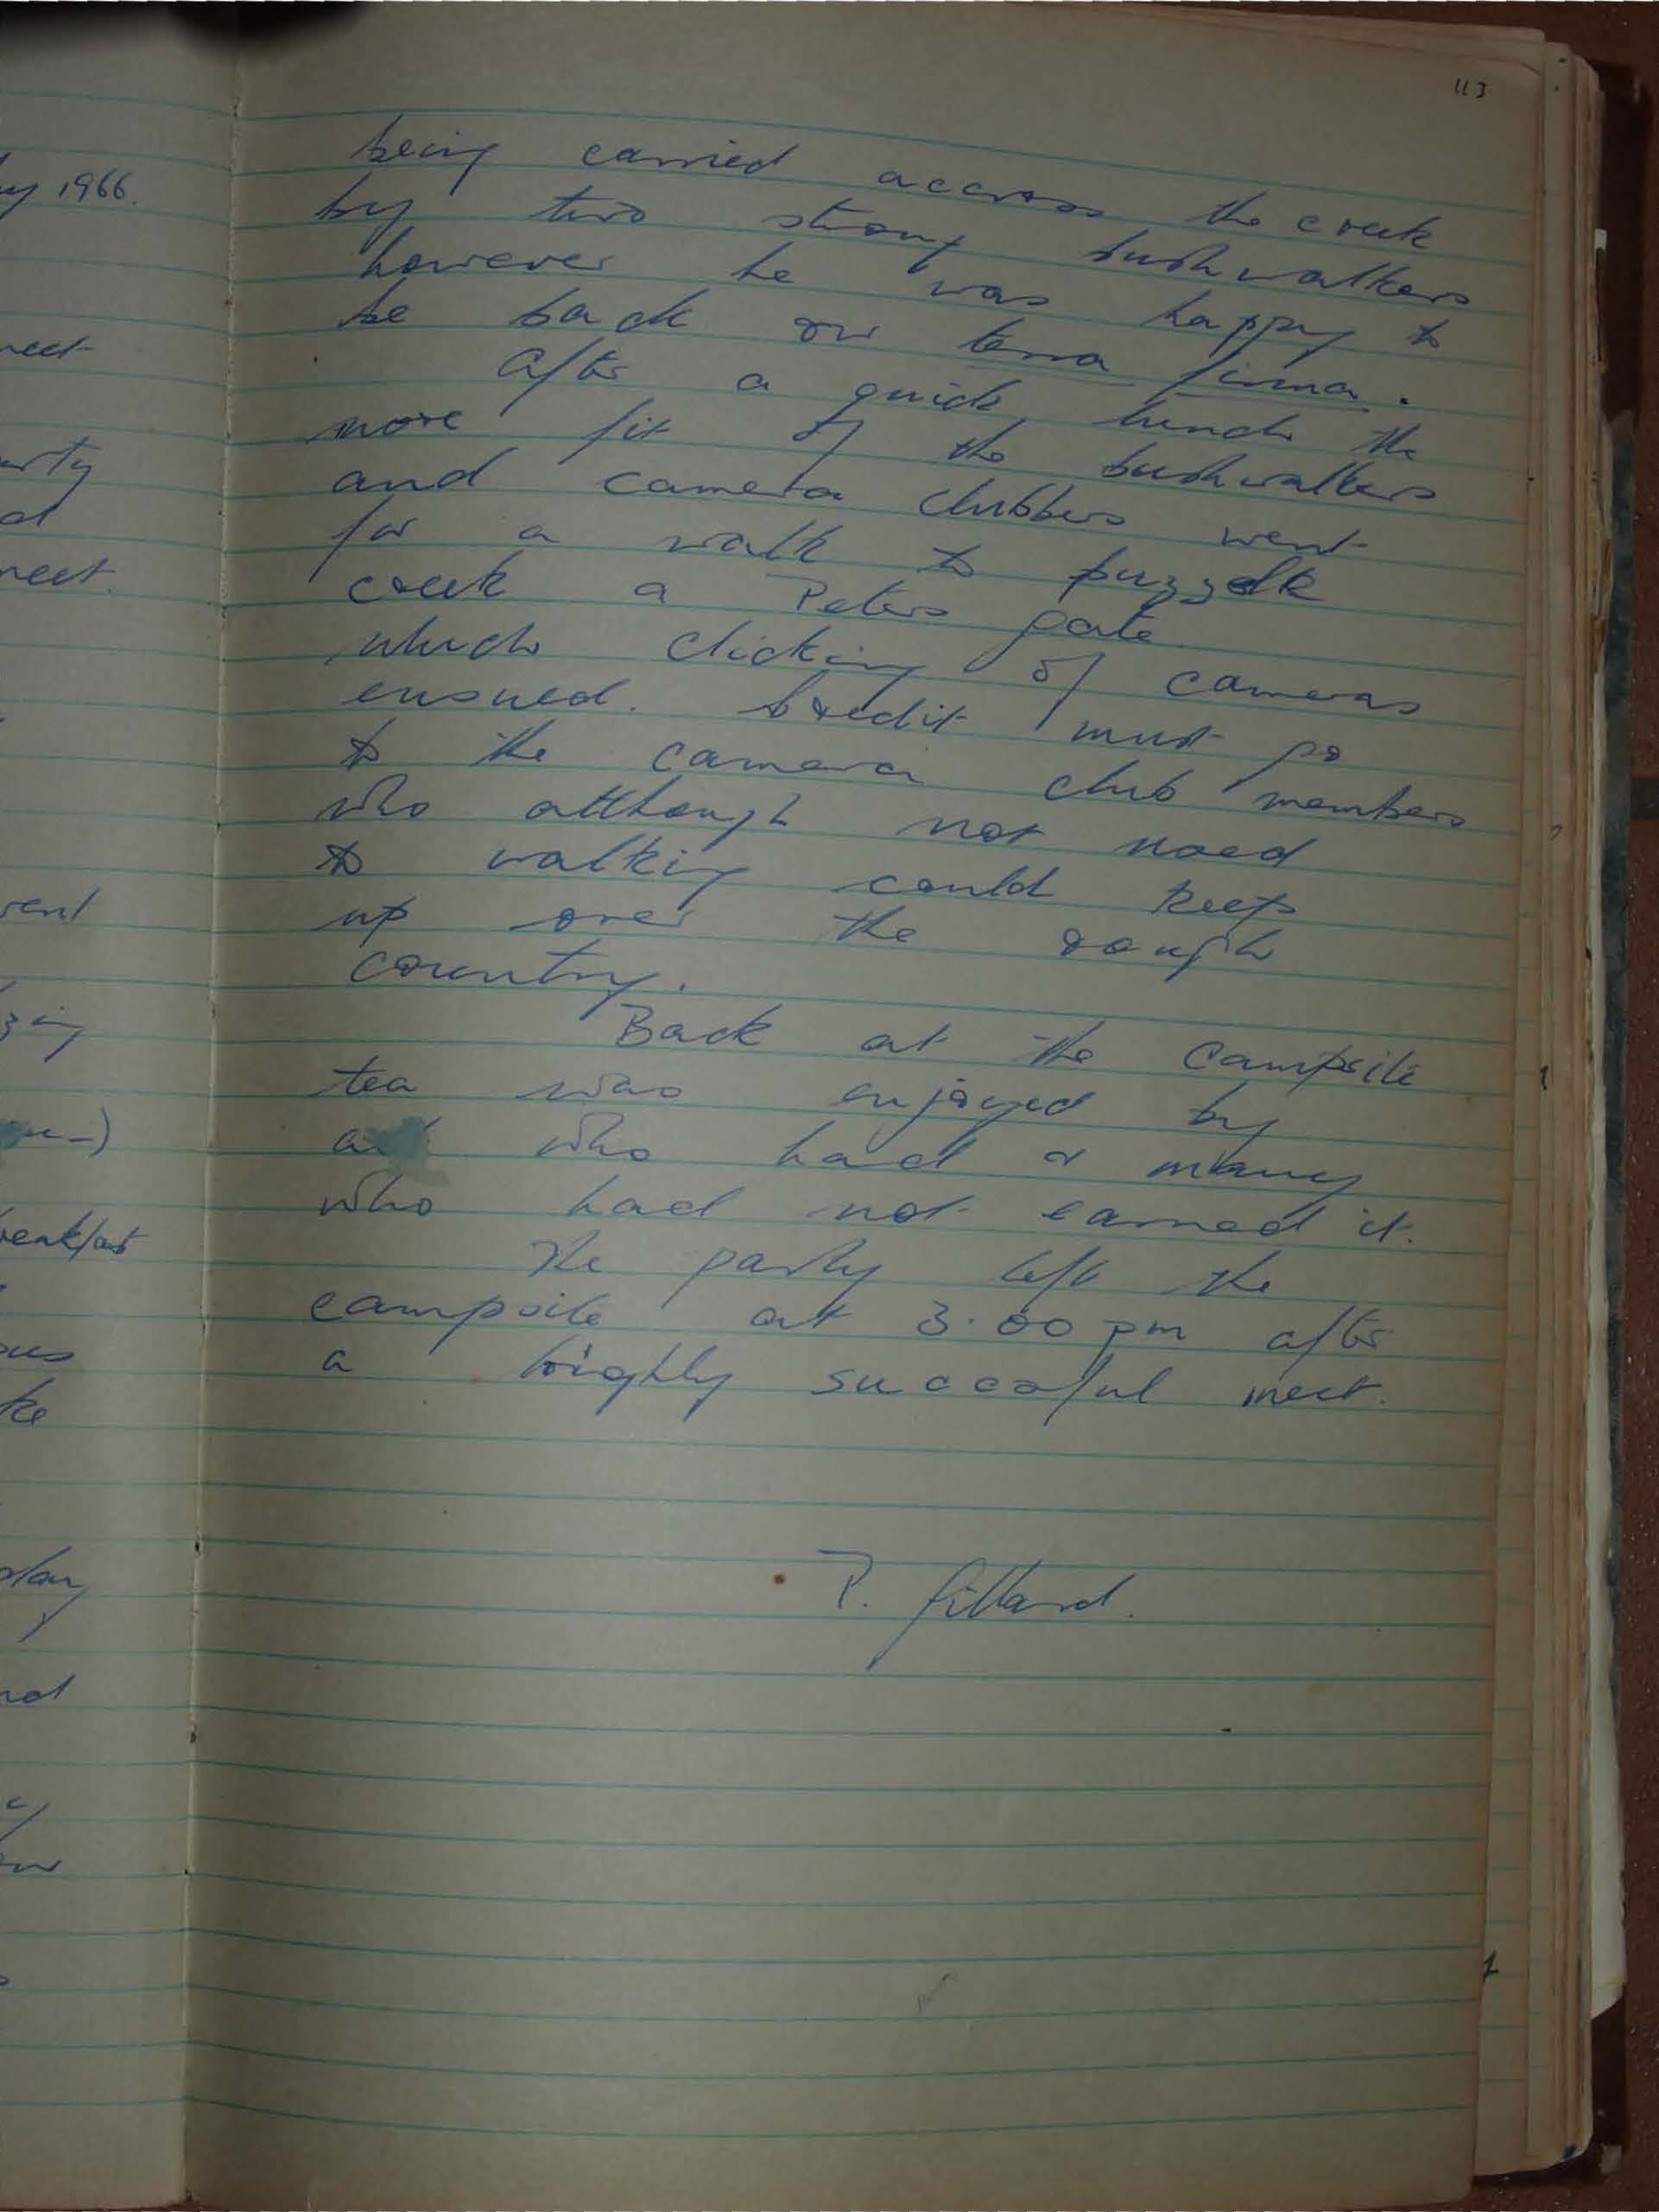 113
being carried across the creek
by two strong bushwalkers
however he was happy to
be back on terra firma.
After a quick lunch the
more fit of the bushwalkers
and camera clubbers went
for a walk to
creek a Peters gate
which clicking of cameras
ensued. credit must go
to the camera club members
who although not used
to walking could keep
up over the rough
country.
Back at the Campsite
tea was enjoyed by
all who had & many
who had not earned it.
The party left the
campsite at 3.00 pm after
a highly succesful meet.
P. Gillard.
1966.